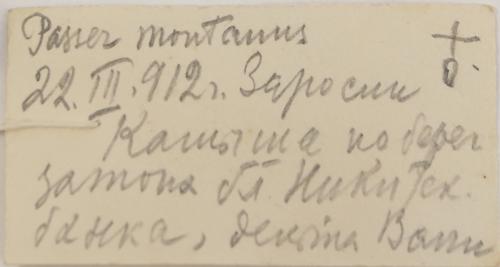 Passer montanus
22.III.912г. Заросли
Камыша по берег
затона бл. Никитск.
банка, дельта Волги